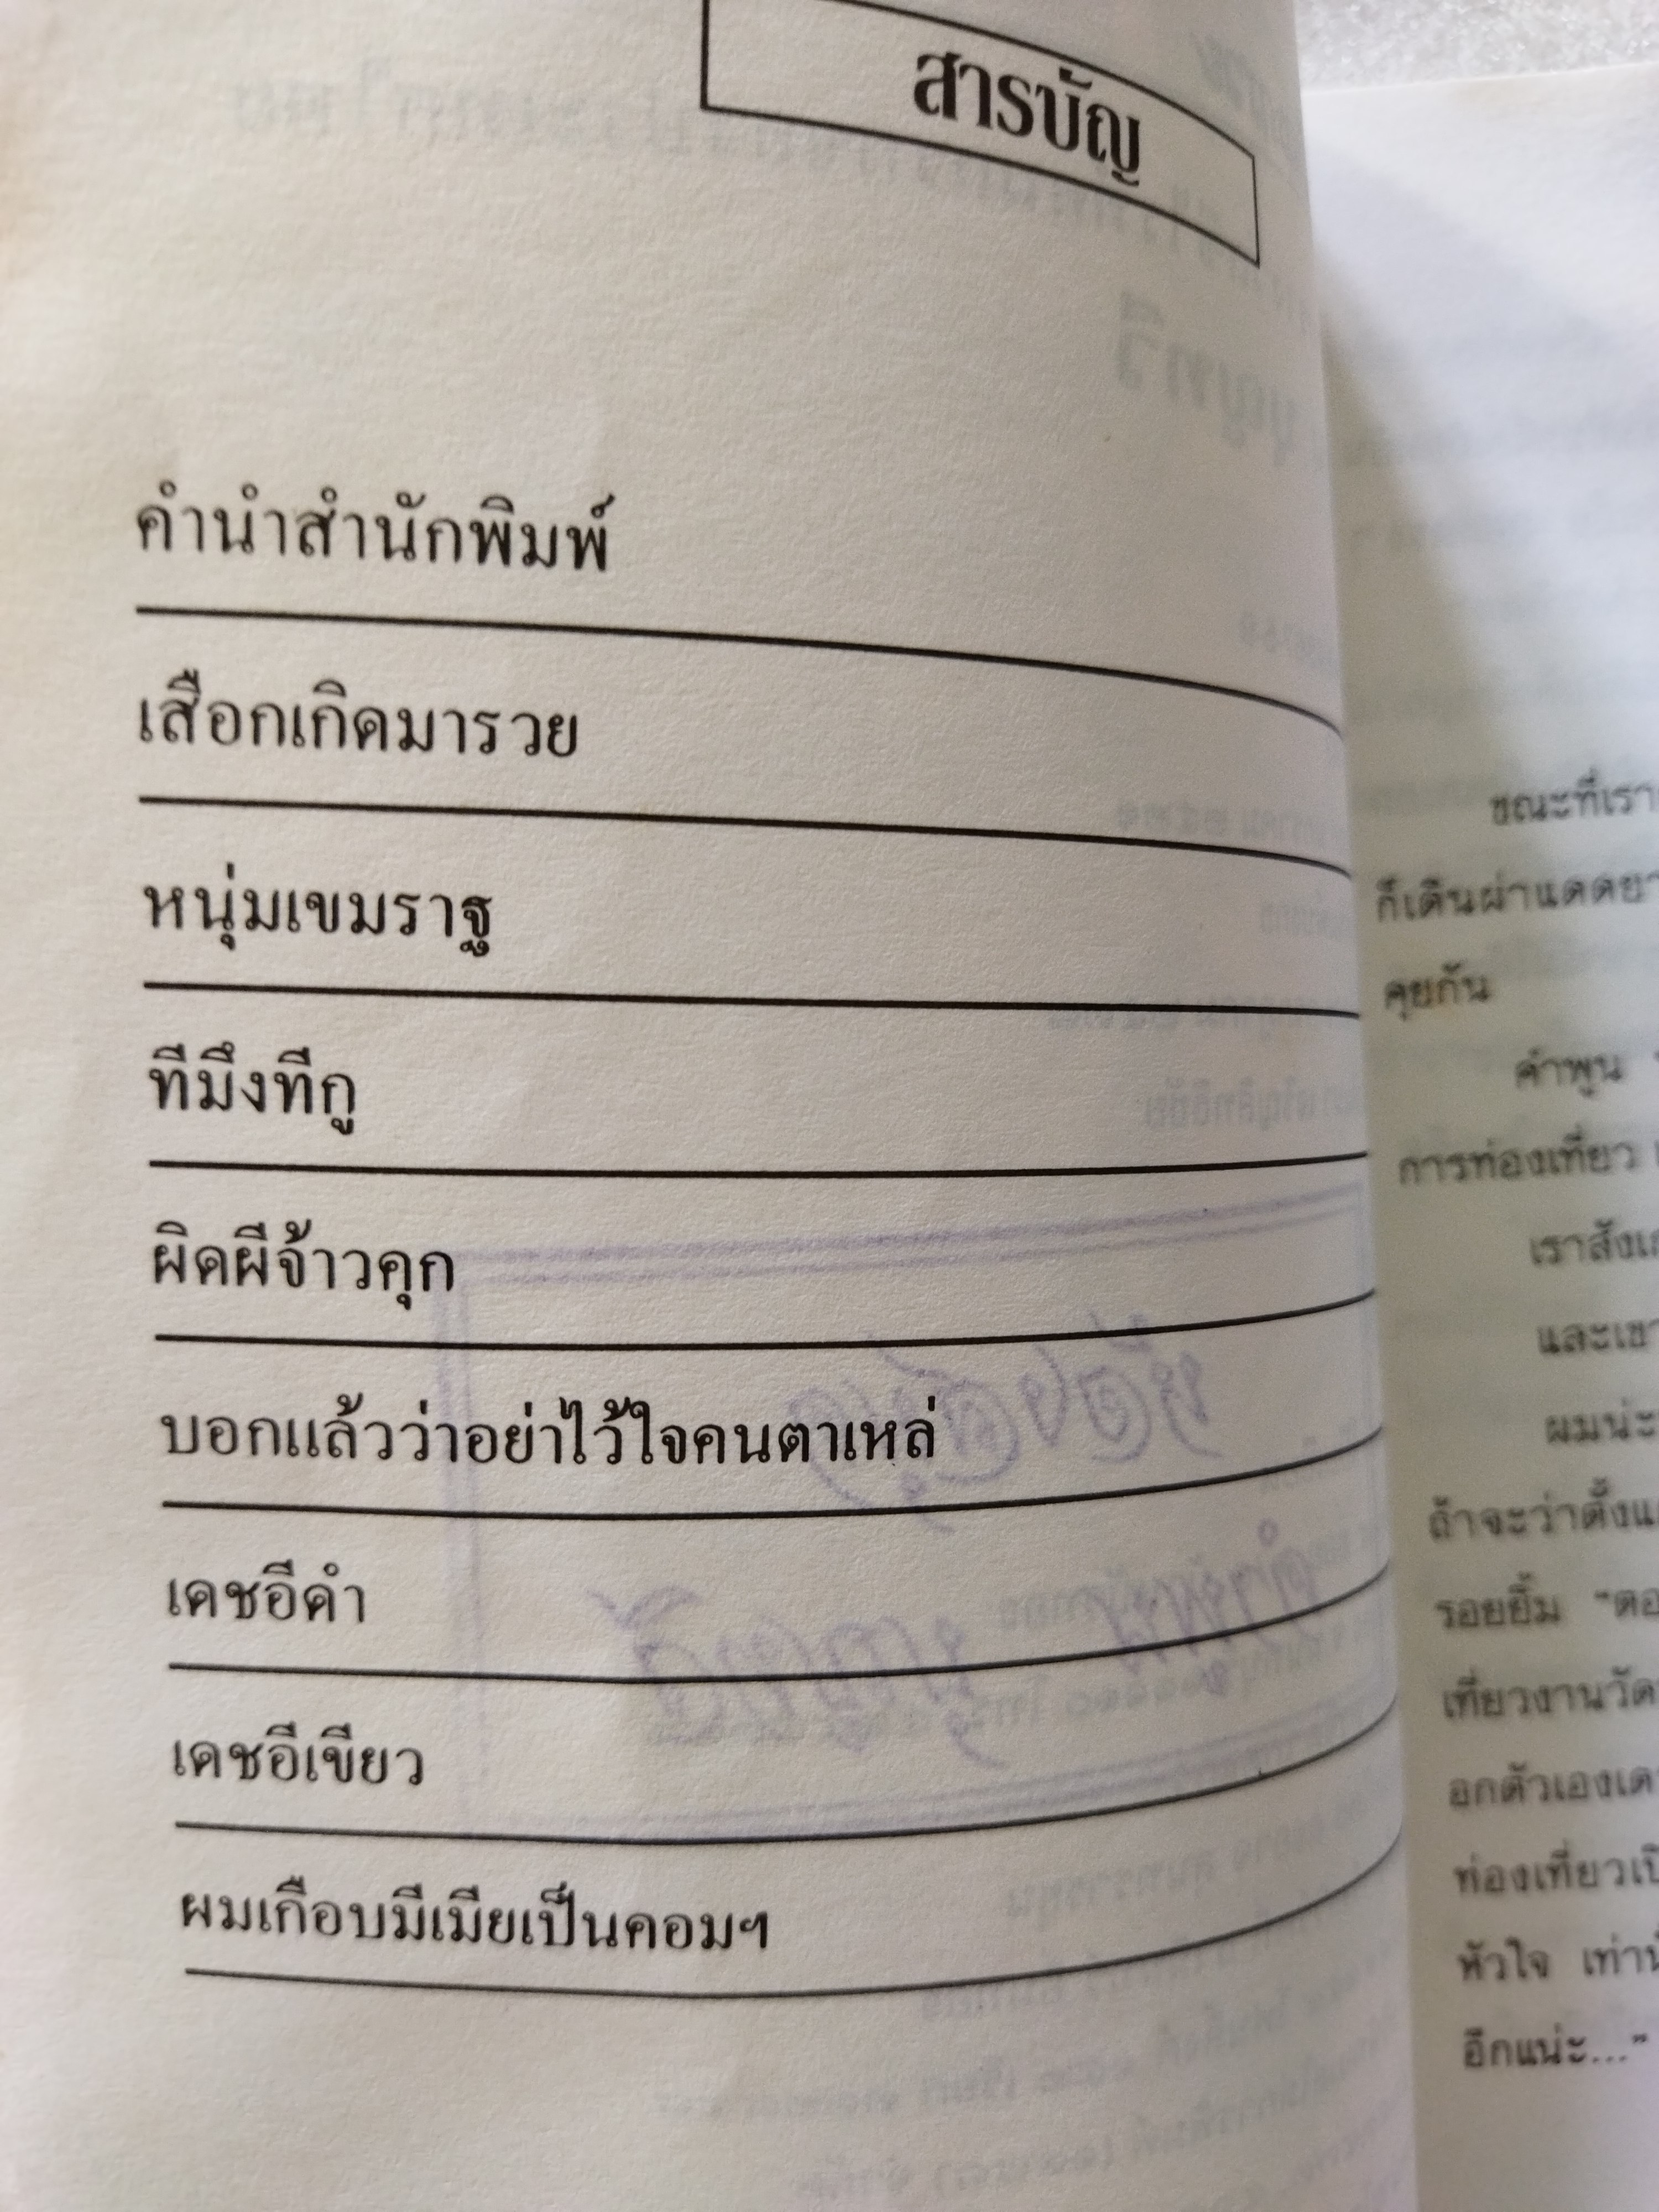 สารบัญ
คำนำสำนักพิมพ์
เสือกเกิดมารวย
หนุ่มเขมราฐ
ทีมึงทีกู
ผิดผีจ้าวคุก
บอกแล้วว่าอย่าไว้ใจคนตาเหล่
เดชอีดำ
เดชอีเขียว
ผมเกือบมีเมียเป็นคอมฯ
ขณะที่เรา
ก็เดินผ่าแดด
คุยกัน
คำพูน
การท่องเที่ยว
เราสัง
และเขา
ผมน่ะ
ถ้าจะว่าตั้ง
รอยยิ้ม
เที่ยวงานวัด
อกตัวเอง
ท่องเที่ยว
หัวใจ เท่า
อีกแน่ะ..."